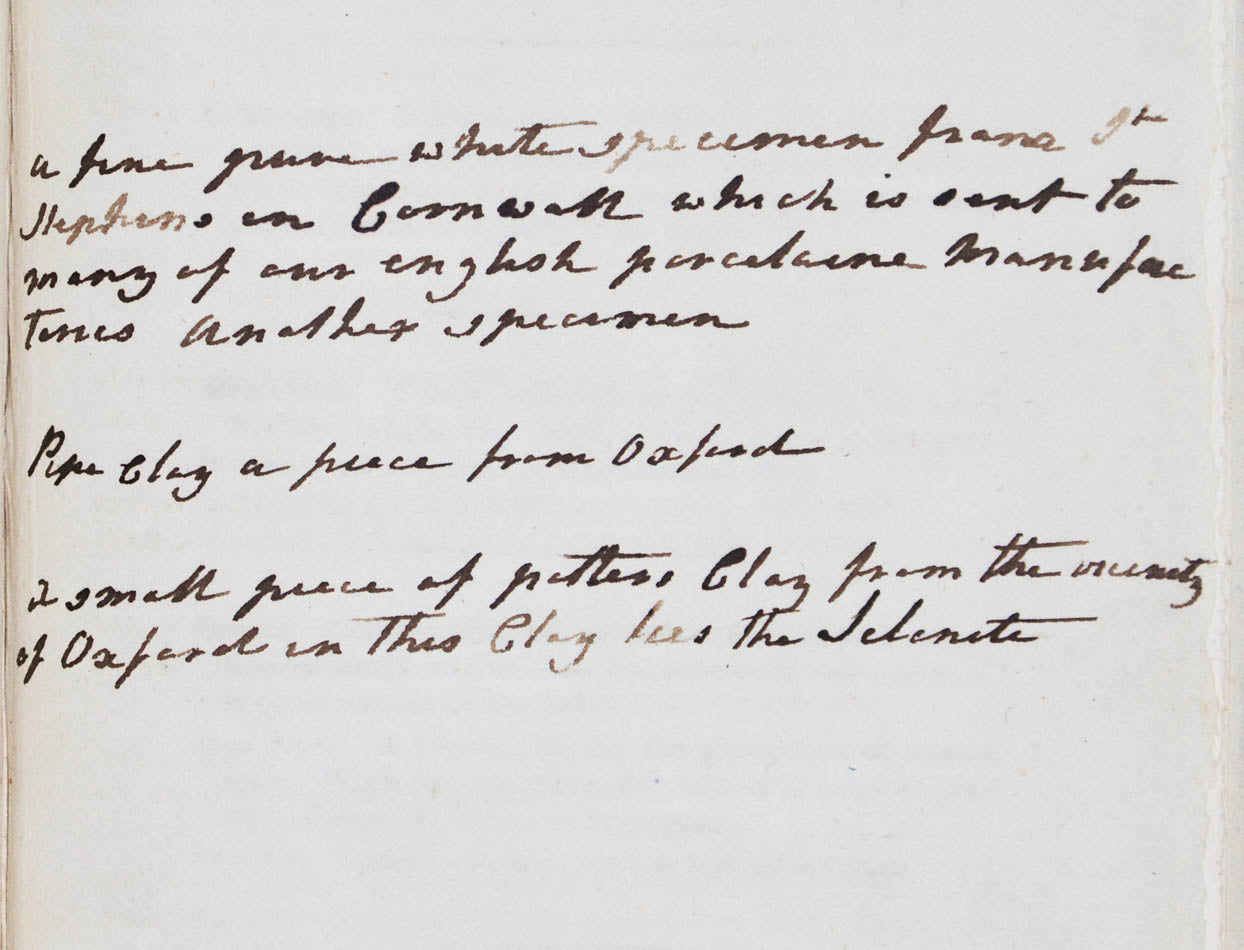 a fine pure white specimen from St
Stephens in Cornwall which is sent to
many of our english porcelaine Manufac
tories Another specimen
Pipe Clay a piece from Oxford
a small piece of potters Clay from the vicinity
of Oxford in this Clay lies the Selenite